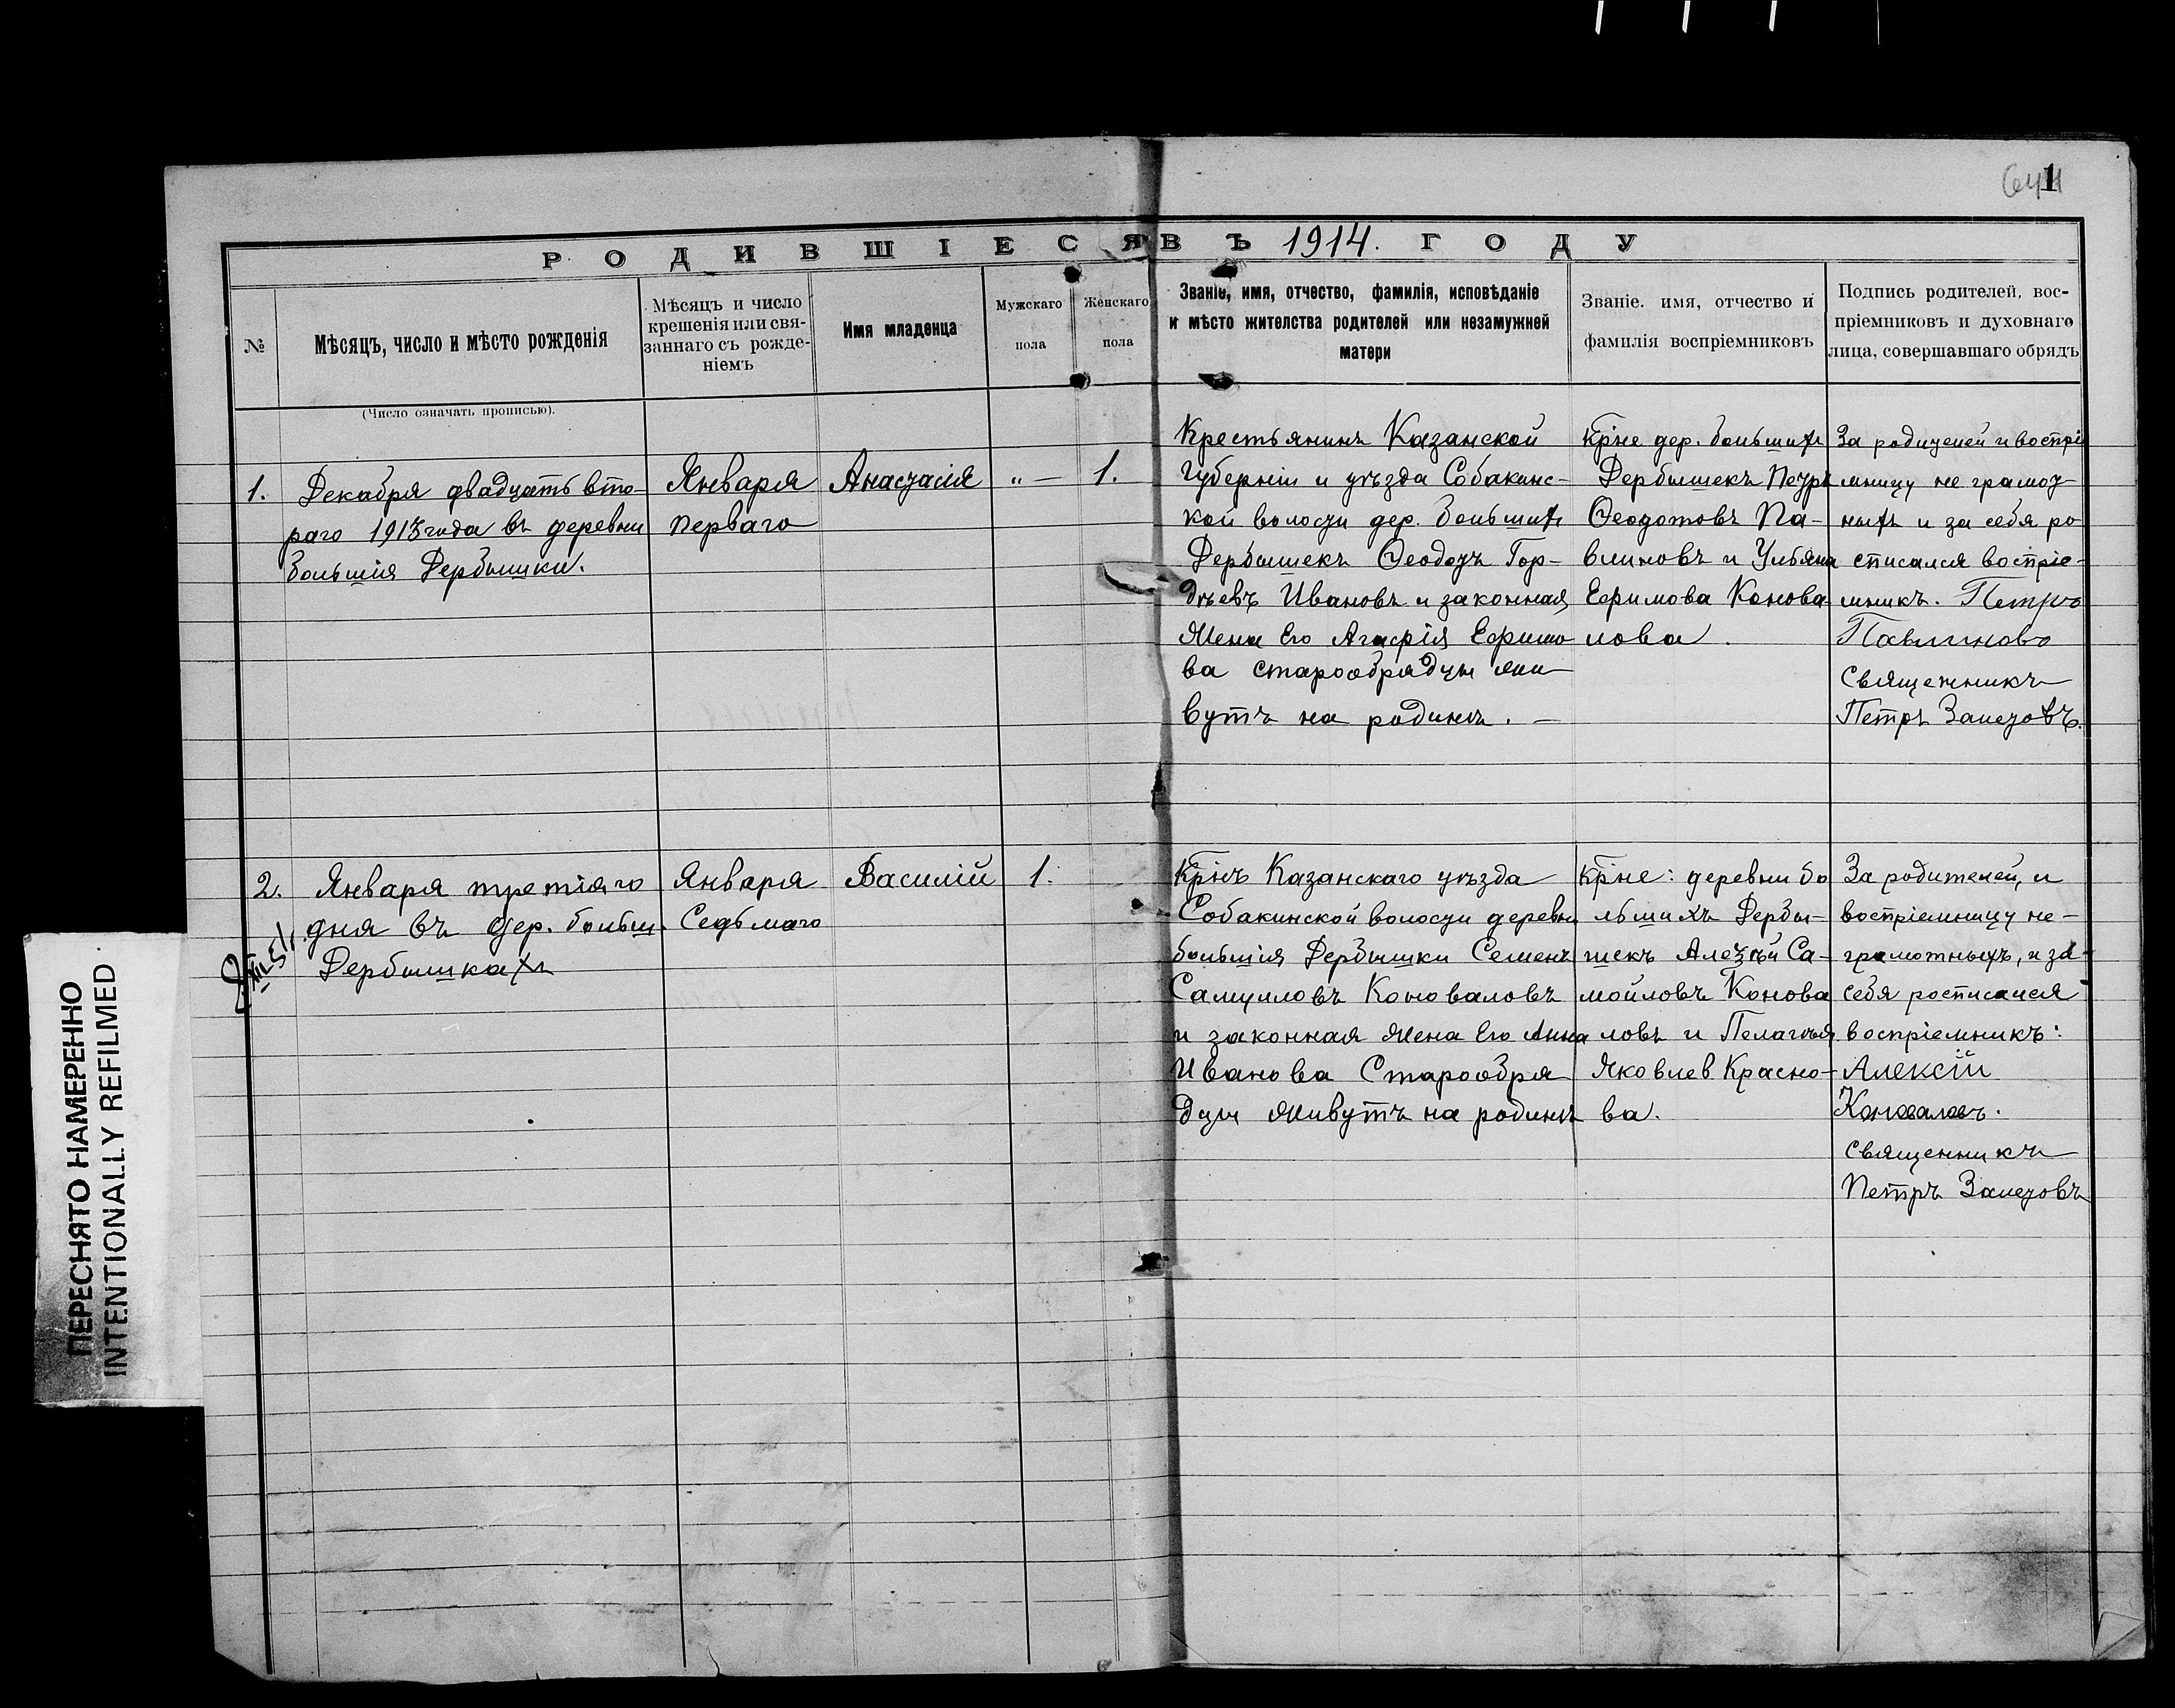 1
РОДИВШІЕСЯ ВЪ 1914. ГОДУ
№
Мѣсяцъ, число и мѣсто рожденія
(Число означать прописью).
Мѣсяцъ и число
крещенія или свя-
заннаго съ рожде-
ніемъ
Имя младенца
Мужскаго
пола
Женскаго
пола
Званіе, имя, отчество, фамилія, исповѣданіе
и мѣсто жителства родителей или незамужней
матери
Званіе. имя, отчество и
фамилія воспріемниковъ
Подпись родителей, вос-
пріемниковъ и духовнаго
лица, совершавшаго обрядъ
1.
Декабря двадцать вто-
раго 1913 года въ деревни
большія Дербышки.
Января
перваго
Анастасія
„ —
1.
Крестьянинъ Казанской
Губерніи и уѣзда Собакинс-
кой волости дер. большихъ
Дербышекъ Ѳеодотъ Гор-
дѣевъ Ивановъ и законная
Жена Его Агафія Ефимо
ва старообрядцы жи
вутъ на родинѣ. —
Кр̄не дер. большихъ
Дербышекъ Петръ
Ѳеодотовъ Па-
влиновъ и Ульяна
Ефимова Конова-
лова.
За родителей и воспріе
мницу не грамот-
ныхъ и за себя ро
списался воспріе-
мникъ. Петръ
Павлиновъ
Священникъ
Петръ Залетовъ.
2.
Января третіяго
дня въ дер. больш.
Дербышкахъ
Января
Седьмаго
Василій
1.
Кр̄нъ Казанскаго уѣзда
Собакинской волости деревни
большія Дербышки Семенъ
Самуиловъ Коноваловъ
и законная Жена Его Анна
Иванова Старообря
дцы Живутъ на родинѣ
Кр̄не: деревни бо
льшихъ Дербы-
шекъ Алексѣй Са-
мойловъ Конова
ловъ и Пелагѣя
Яковлев Красно-
ва.
За родителей, и
воспріемницу не-
грамотныхъ, и за-
себя росписался
воспріемникъ:
Алексій
Коноваловъ.
Священникъ
Петръ Залетовъ
ПЕРЕСНЯТО НАМЕРЕННО
INTENTIONALLY REFILMED